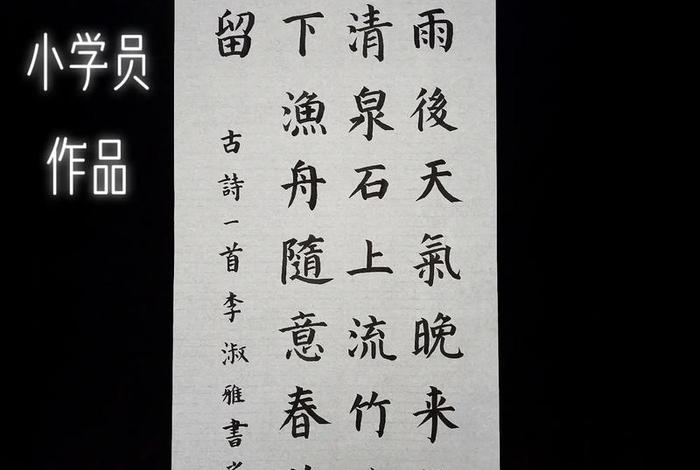 小学员
作品
雨後天氣晚来
清泉石上流竹
下漁舟隨意春
留
古詩一首李淑雅書